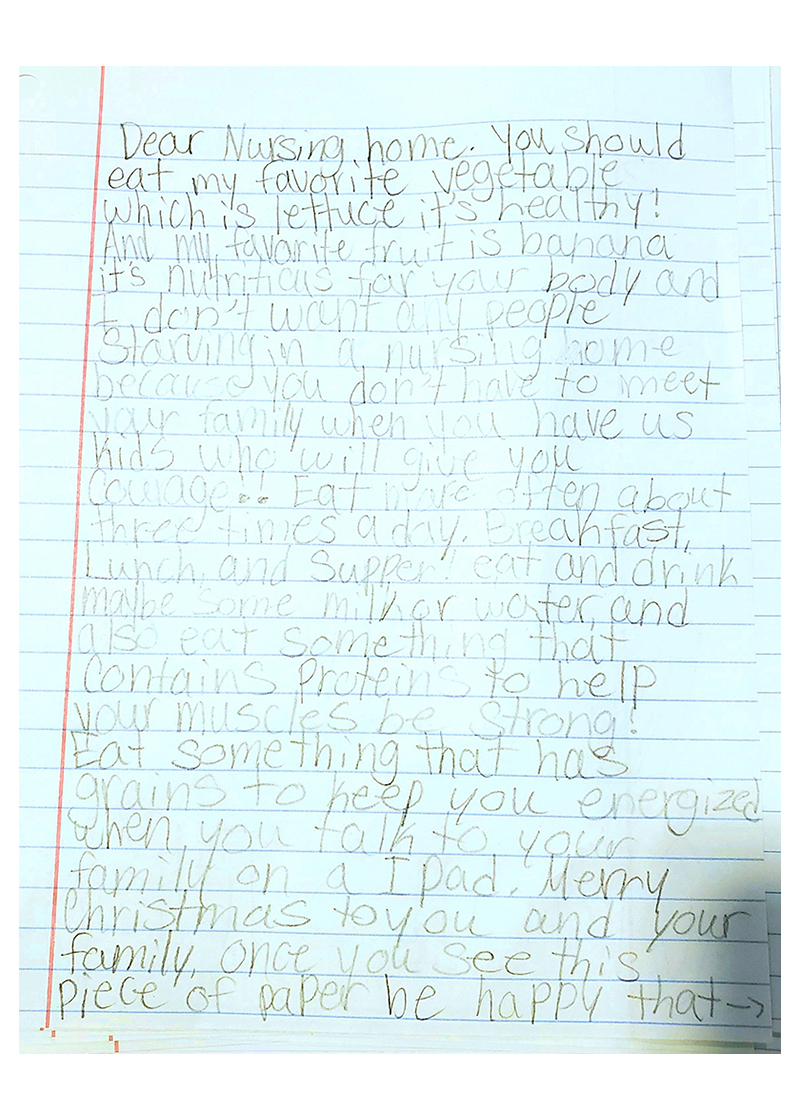 Dear Nursing home. You should
eat my favorite vegetable
which is lettuce it's healthy!
And my favorite fruit is banana
it's nutritias for your body and
I don't want any people
Starving in a nursing home
because you don't have to meet
your family when you have us
kids who will give you
Courage!! Eat more often about
three times a day. Breahfast,
Lunch, and Supper! eat and drink
maybe some milk or water, and
also eat something that
Contains Proteins to help
your muscles be strong!
Eat something that has
grains to keep you energized
when you talk to your
family on a Ipad. Merry
Christmas to you and your
family, once you see this
piece of paper be happy that →